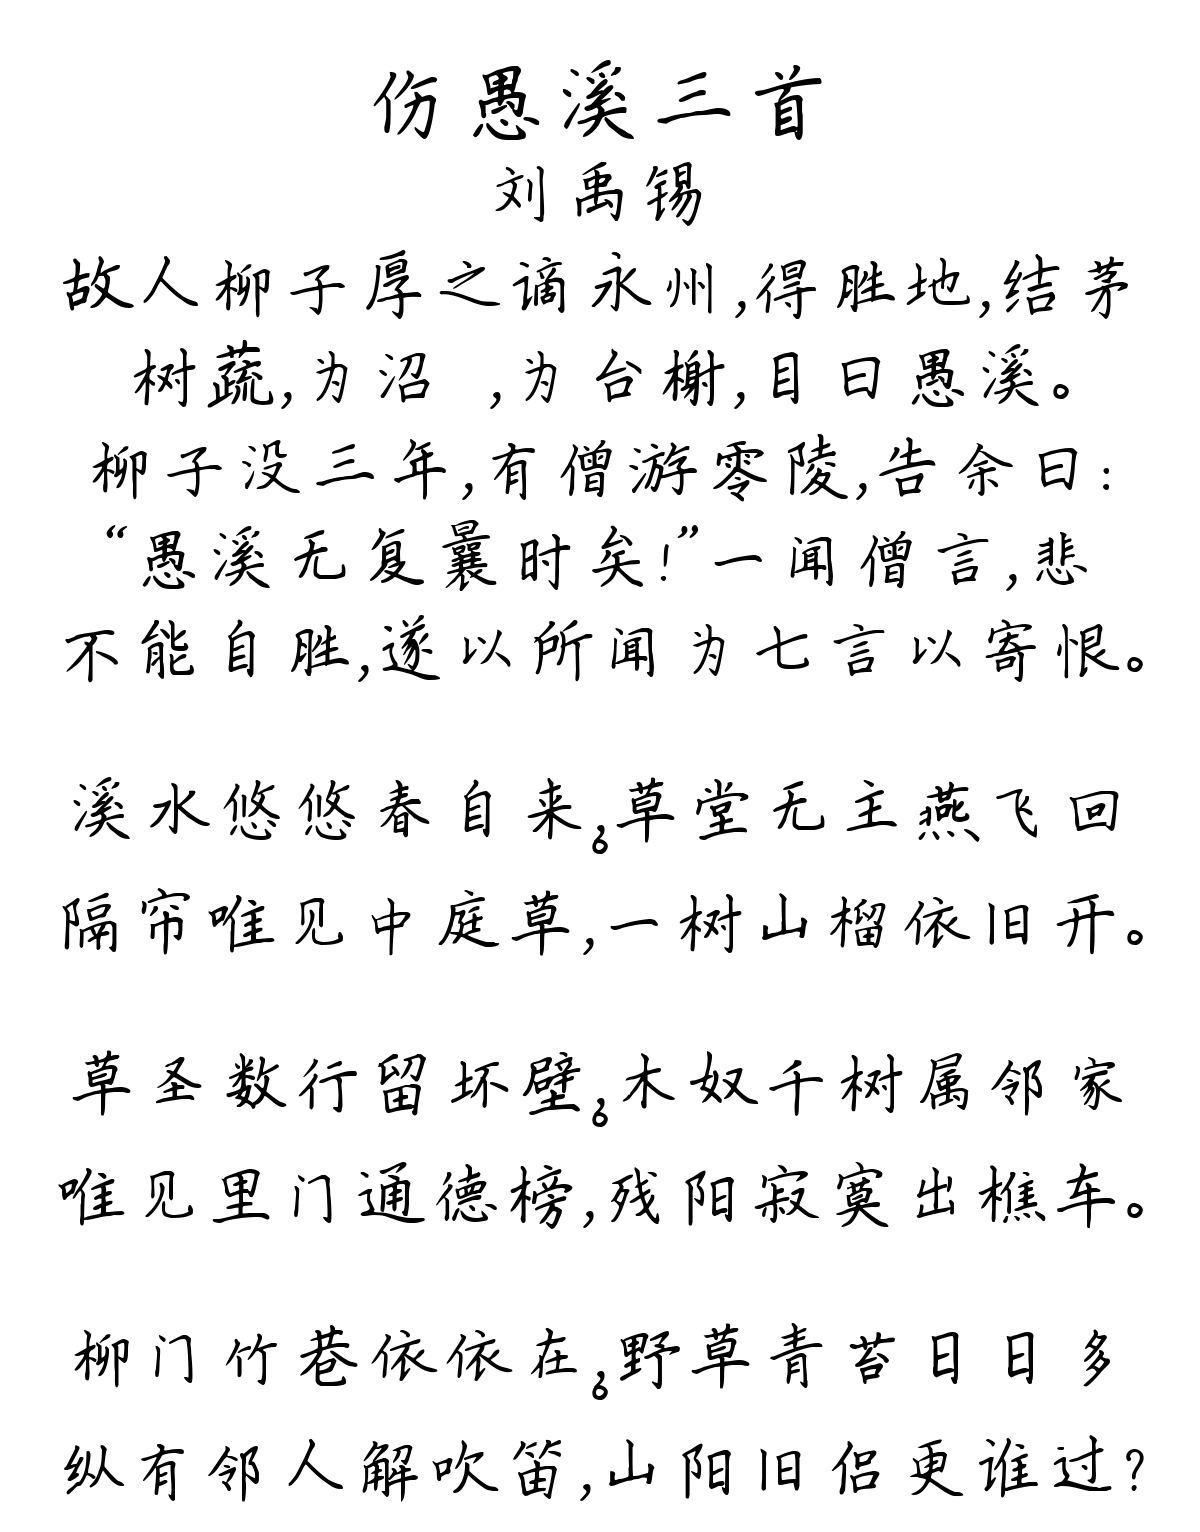 伤愚溪三首
刘禹锡
故人柳子厚之谪永州,得胜地,结茅
树蔬,为沼 ,为台榭,目曰愚溪。
柳子没三年,有僧游零陵,告余曰:
“愚溪无复曩时矣!”一闻僧言,悲
不能自胜,遂以所闻为七言以寄恨。
溪水悠悠春自来,草堂无主燕飞回。
隔帘唯见中庭草,一树山榴依旧开。
草圣数行留坏壁,木奴千树属邻家。
唯见里门通德榜,残阳寂寞出樵车。
柳门竹巷依依在,野草青苔日日多。
纵有邻人解吹笛,山阳旧侣更谁过?